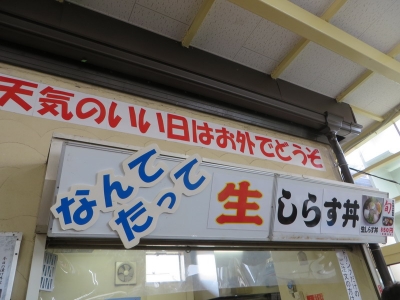 天気のいい日はお外でどうぞ
なんて
たって
生しらす丼
旬
生しらす丼